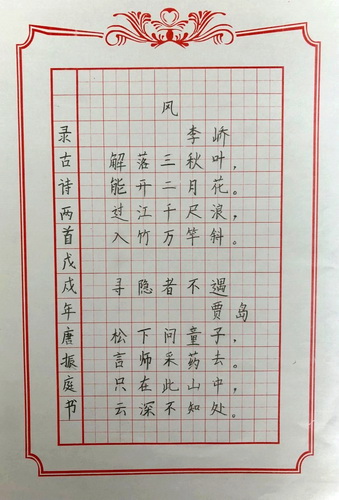 风
李峤
解落三秋叶，
能开二月花。
过江千尺浪，
入竹万竿斜。
寻隐者不遇
贾岛
松下问童子，
言师采药去。
只在此山中，
云深不知处。
录古诗两首戊戌年唐振庭书